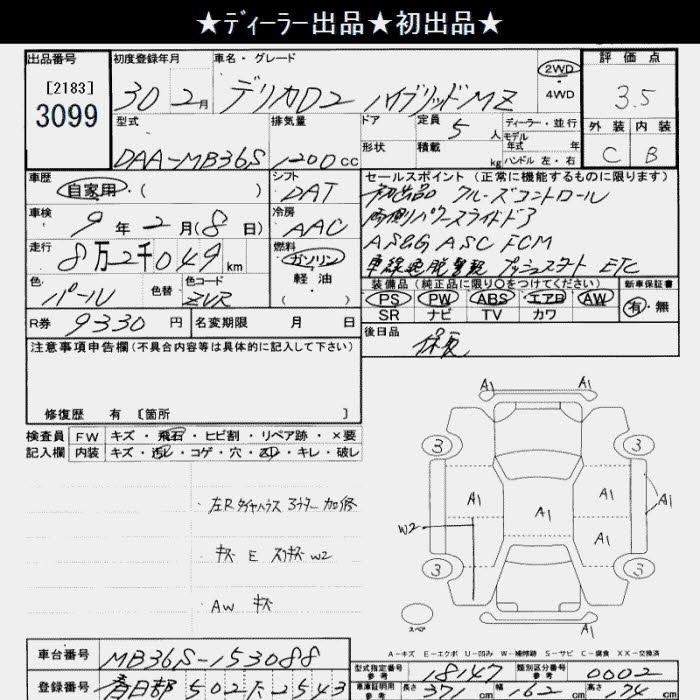 ★ディーラー出品★初出品★
出品番号 初度登録年月 車名・グレード 評価点
[2183] 30 2月 デリカD2 ハイブリッドMZ 2WD 3.5
3099 4WD
型式 排気量 ドア 定員 5人 ディーラー・並行 外装 内装
モデル年式 年
形状 積載 kg ハンドル 左・右 C B
DAA-MB36S 1200cc
車歴 シフト セールスポイント (正常に機能するものに限ります)
自家用・( ) DAT 初出品 クルーズコントロール
車検 冷房 両側パワースライドドア
9年2月(8日) AAC
走行 燃料 AS&G ASC FCM
8万2千049km ガソリン 車線逸脱警報 プッシュスタート ETC
色 色替 色コード 軽油 装備品 (純正品に限り○をつけてください) 新車保証書
パール ZVR ( ) PS PW ABS エアB AW 有・無
SR ナビ TV カワ
R券 9330円 名変期限 月 日 後日品
注意事項申告欄(不具合内容等は具体的に記入して下さい) 保冊
修復歴 有 〔箇所 〕
検査員 FW キズ・飛石・ヒビ割・リペア跡・×要
記入欄 内装 キズ・汚レ・コゲ・穴・スレ・キレ・破レ
左Rタイヤハウス コアサポート 加修
キズ E スリキズ W2
AW キズ
A1 A1
3 3
A1 A1 A1 A1
W2 A1
3 3
スペア A1
A-キズ E-エクボ U-凹み W-補修跡 S-サビ C-腐食 XX-交換済
車台番号 MB36S-153088 型式指定番号 参考 18147 類別区分番号 参考 0002
登録番号 春日部 502 た 2543 車庫証明用 参考 長さ 371cm 幅 162cm 高さ 174cm